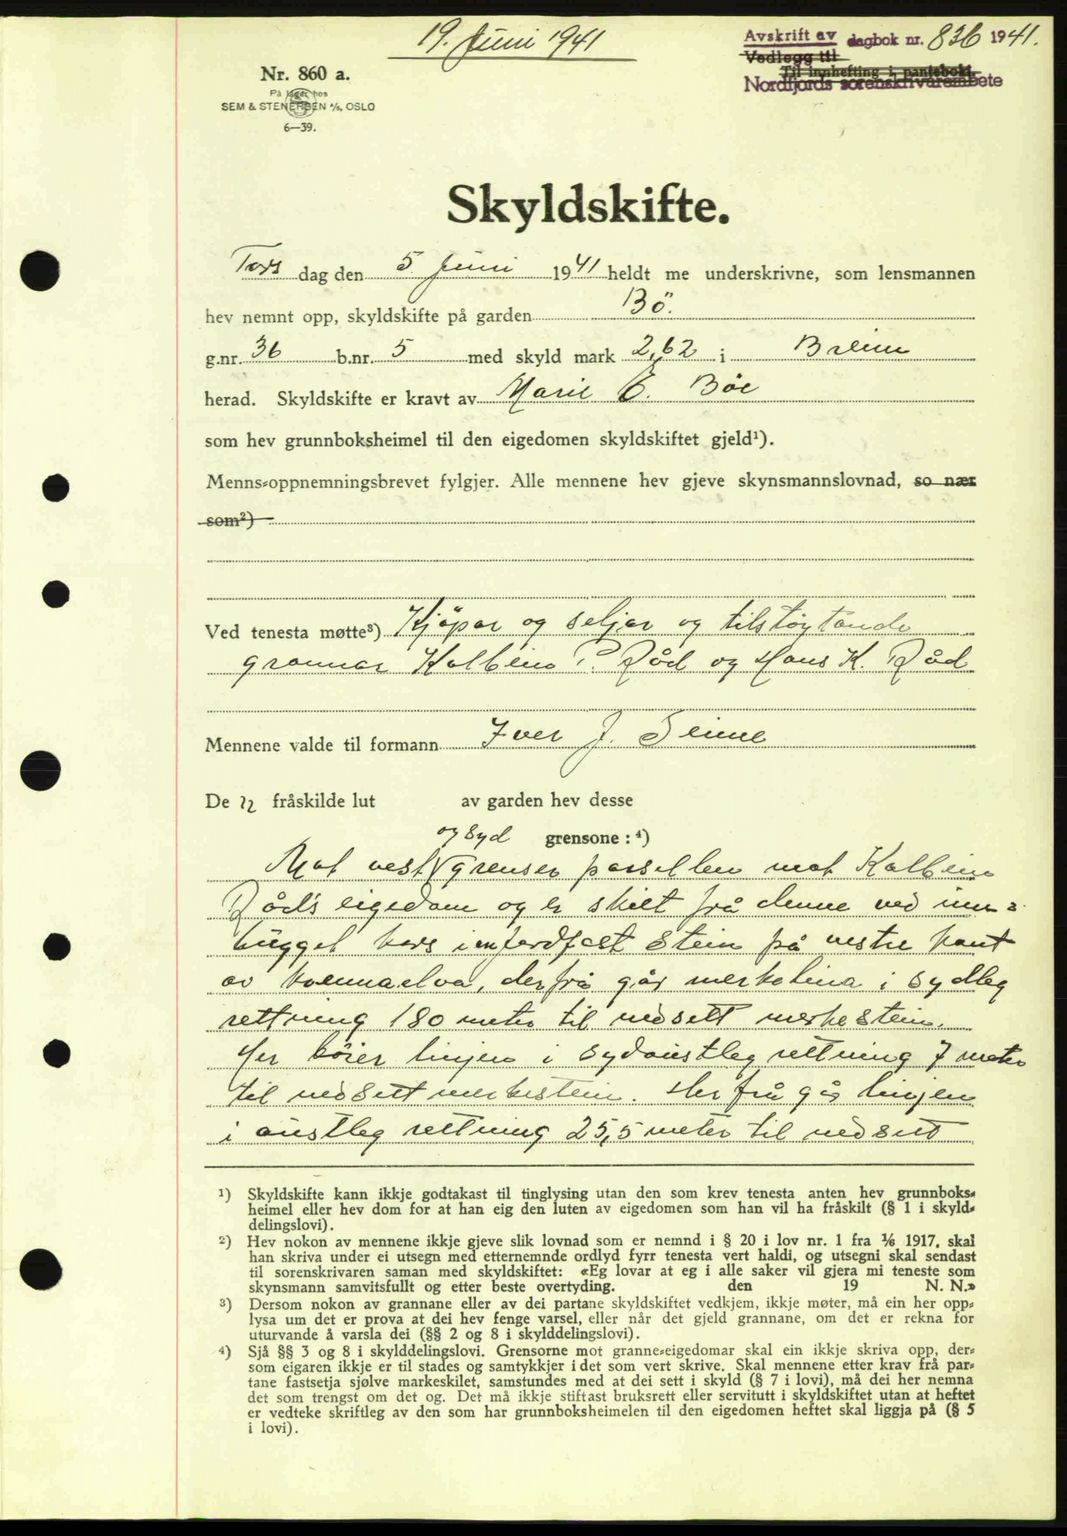 19. Juni 1941
Avskrift av dagbok nr. 836 1941.
Vedlegg til
Til innhefting i pantebok.
Nordfjords sorenskrivarembete
Nr. 860 a.
På lager hos
SEM & STENERSEN A/S, OSLO
6—39.
Skyldskifte.
Tors dag den 5. Juni 1941 heldt me underskrivne, som lensmannen
hev nemnt opp, skyldskifte på garden Bö.
g.nr. 36 b.nr. 5 med skyld mark 2,62 i Breim
herad. Skyldskifte er kravt av Marie E. Böe
som hev grunnboksheimel til den eigedomen skyldskiftet gjeld¹).
Menns-oppnemningsbrevet fylgjer. Alle mennene hev gjeve skynsmannslovnad, so nær
som²)
Ved tenesta møtte³) Kjöpar og seljar og tilstöytande
grannar Kolbein P. Råd og Hans K. Råd
Mennene valde til formann Iver J. Seime
De fråskilde lut av garden hev desse
og Syd grensone : ⁴)
Mot vest grenser parsellen mot Kolbein
Råd's eigedom og er skilt frå denne ved inn-
hugget kors i en jordfast Stein på vestre kant
av kvennaelva, derfrå går merkelina i sydleg
rettning 180 meter til nedsett merkestein.
Her böier linjen i sydaustleg rettning 7 meter
til nedsett merkestein. Her frå går linjen
i austleg rettning 25,5 meter til nedsett
¹) Skyldskifte kann ikkje godtakast til tinglysing utan den som krev tenesta anten hev grunnboks-
heimel eller hev dom for at han eig den luten av eigedomen som han vil ha fråskilt (§ 1 i skyld-
delingslovi).
²) Hev nokon av mennene ikkje gjeve slik lovnad som er nemnd i § 20 i lov nr. 1 fra ¹/₆ 1917, skal
han skriva under ei utsegn med etternemnde ordlyd fyrr tenesta vert haldi, og utsegni skal sendast
til sorenskrivaren saman med skyldskiftet: «Eg lovar at eg i alle saker vil gjera mi teneste som
skynsmann samvitsfullt og etter beste overtyding. den 19 N. N.»
³) Dersom nokon av grannane eller av dei partane skyldskiftet vedkjem, ikkje møter, må ein her opp-
lysa um det er prova at dei hev fenge varsel, eller når det gjeld grannane, om det er rekna for
uturvande å varsla dei (§§ 2 og 8 i skylddelingslovi).
⁴) Sjå §§ 3 og 8 i skylddelingslovi. Grensorne mot granne-eigedomar skal ein ikkje skriva opp, der-
som eigaren ikkje er til stades og samtykkjer i det som vert skrive. Skal mennene etter krav frå par-
tane fastsetja sjølve markeskilet, samstundes med at dei sett i skyld (§ 7 i lovi), må dei her nemna
det som trengst om det og. Det må ikkje stiftast bruksrett eller servitutt i skyldskiftet utan at heftet
er vedteke skriftleg av den som har grunnboksheimelen til den eigedomen heftet skal liggja på (§ 5
i lovi).